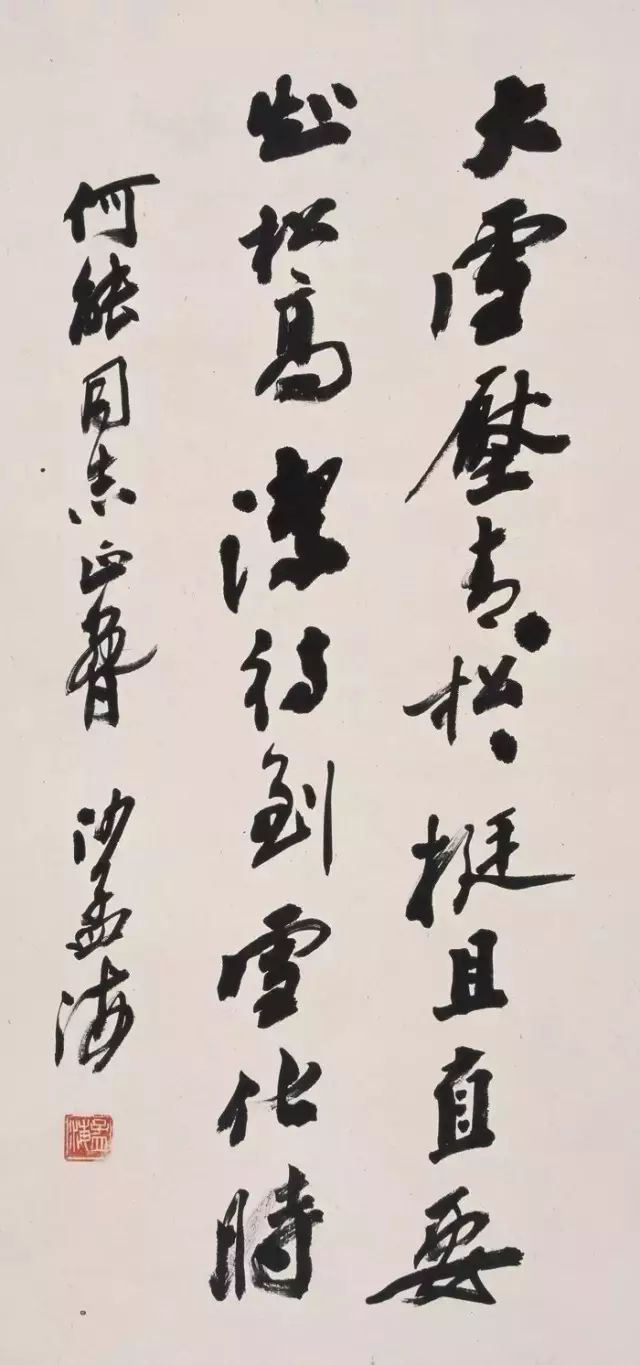 大雪壓青〻松〻挺且直要
知松高潔待到雪化時
何能同志正 沙孟海
孟海